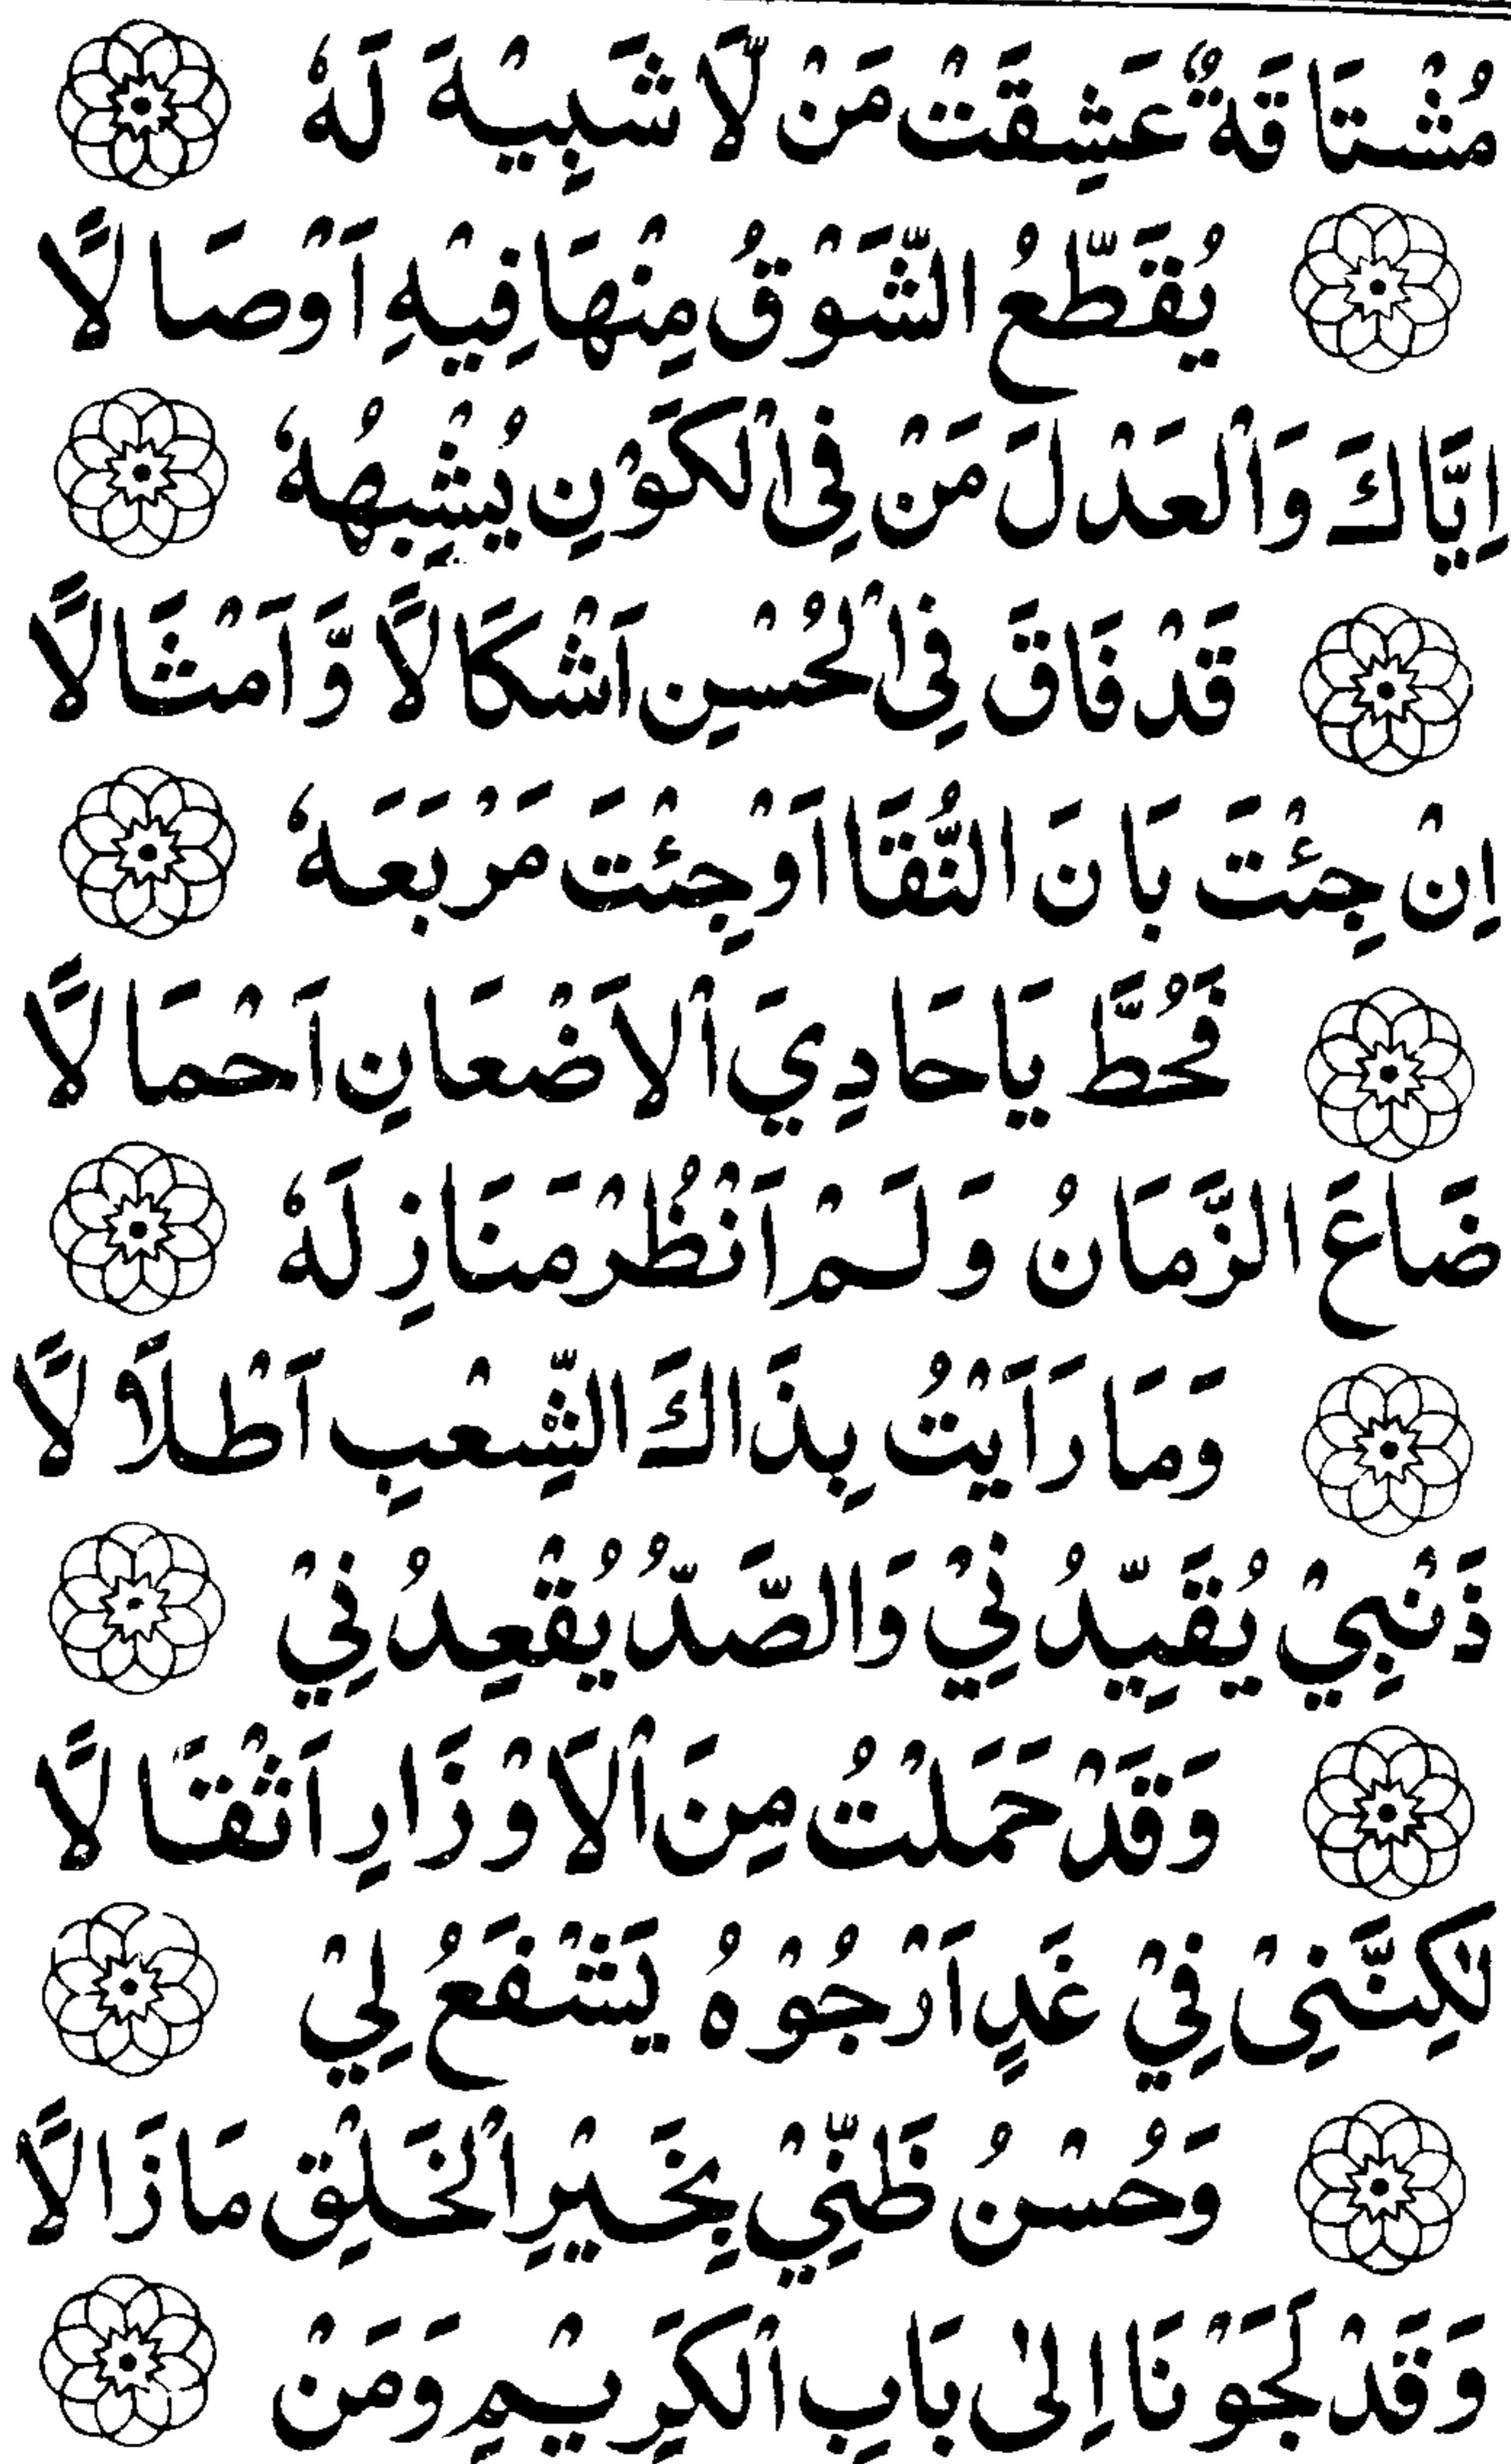 مُشْتَاقَةٌ عَشِقَتْ مَنْ لَّا شَبِيْهَ لَهٗ
يُقَطِّعُ الشَّوْقُ مِنْهَا فِيْهِ اَوْصَالًا
اِيَّاكَ وَالْعَدْلَ مَنْ فِى الْكَوْنِ يُشْبِهُهٗ
قَدْ فَاقَ فِى الْحُسْنِ اَشْكَالًا وَّاَمْثَالًا
اِنْ جِئْتَ بَانَ النُّقَا اَوْ جِئْتَ مَرْبَعَهٗ
فَحُطَّ يَا حَادِيَ الْاَضْعَانِ اَحْمَالًا
ضَاعَ الزَّمَانُ وَلَمْ اَنْظُرْ مَنَازِلَهٗ
وَمَا رَاَيْتُ بِذَاكَ الشِّعْبِ اَطْلَاوَلًا
ذَنْبِيْ يُقَيِّدُنِيْ وَالصَّدُّ يُقْعِدُنِيْ
وَقَدْ حَمَلْتُ مِنَ الْاَوْزَارِ اَثْقَالًا
لٰكِنَّنِىْ فِيْ غَدٍ اَرْجُوْهُ يَشْفَعُ لِيْ
وَحُسْنُ ظَنِّيْ بِخَيْرِ الْخَلْقِ مَا زَالَا
وَقَدْ لَجَوْنَا اِلٰى بَابِ الْكَرِيْمِ وَمَنْ